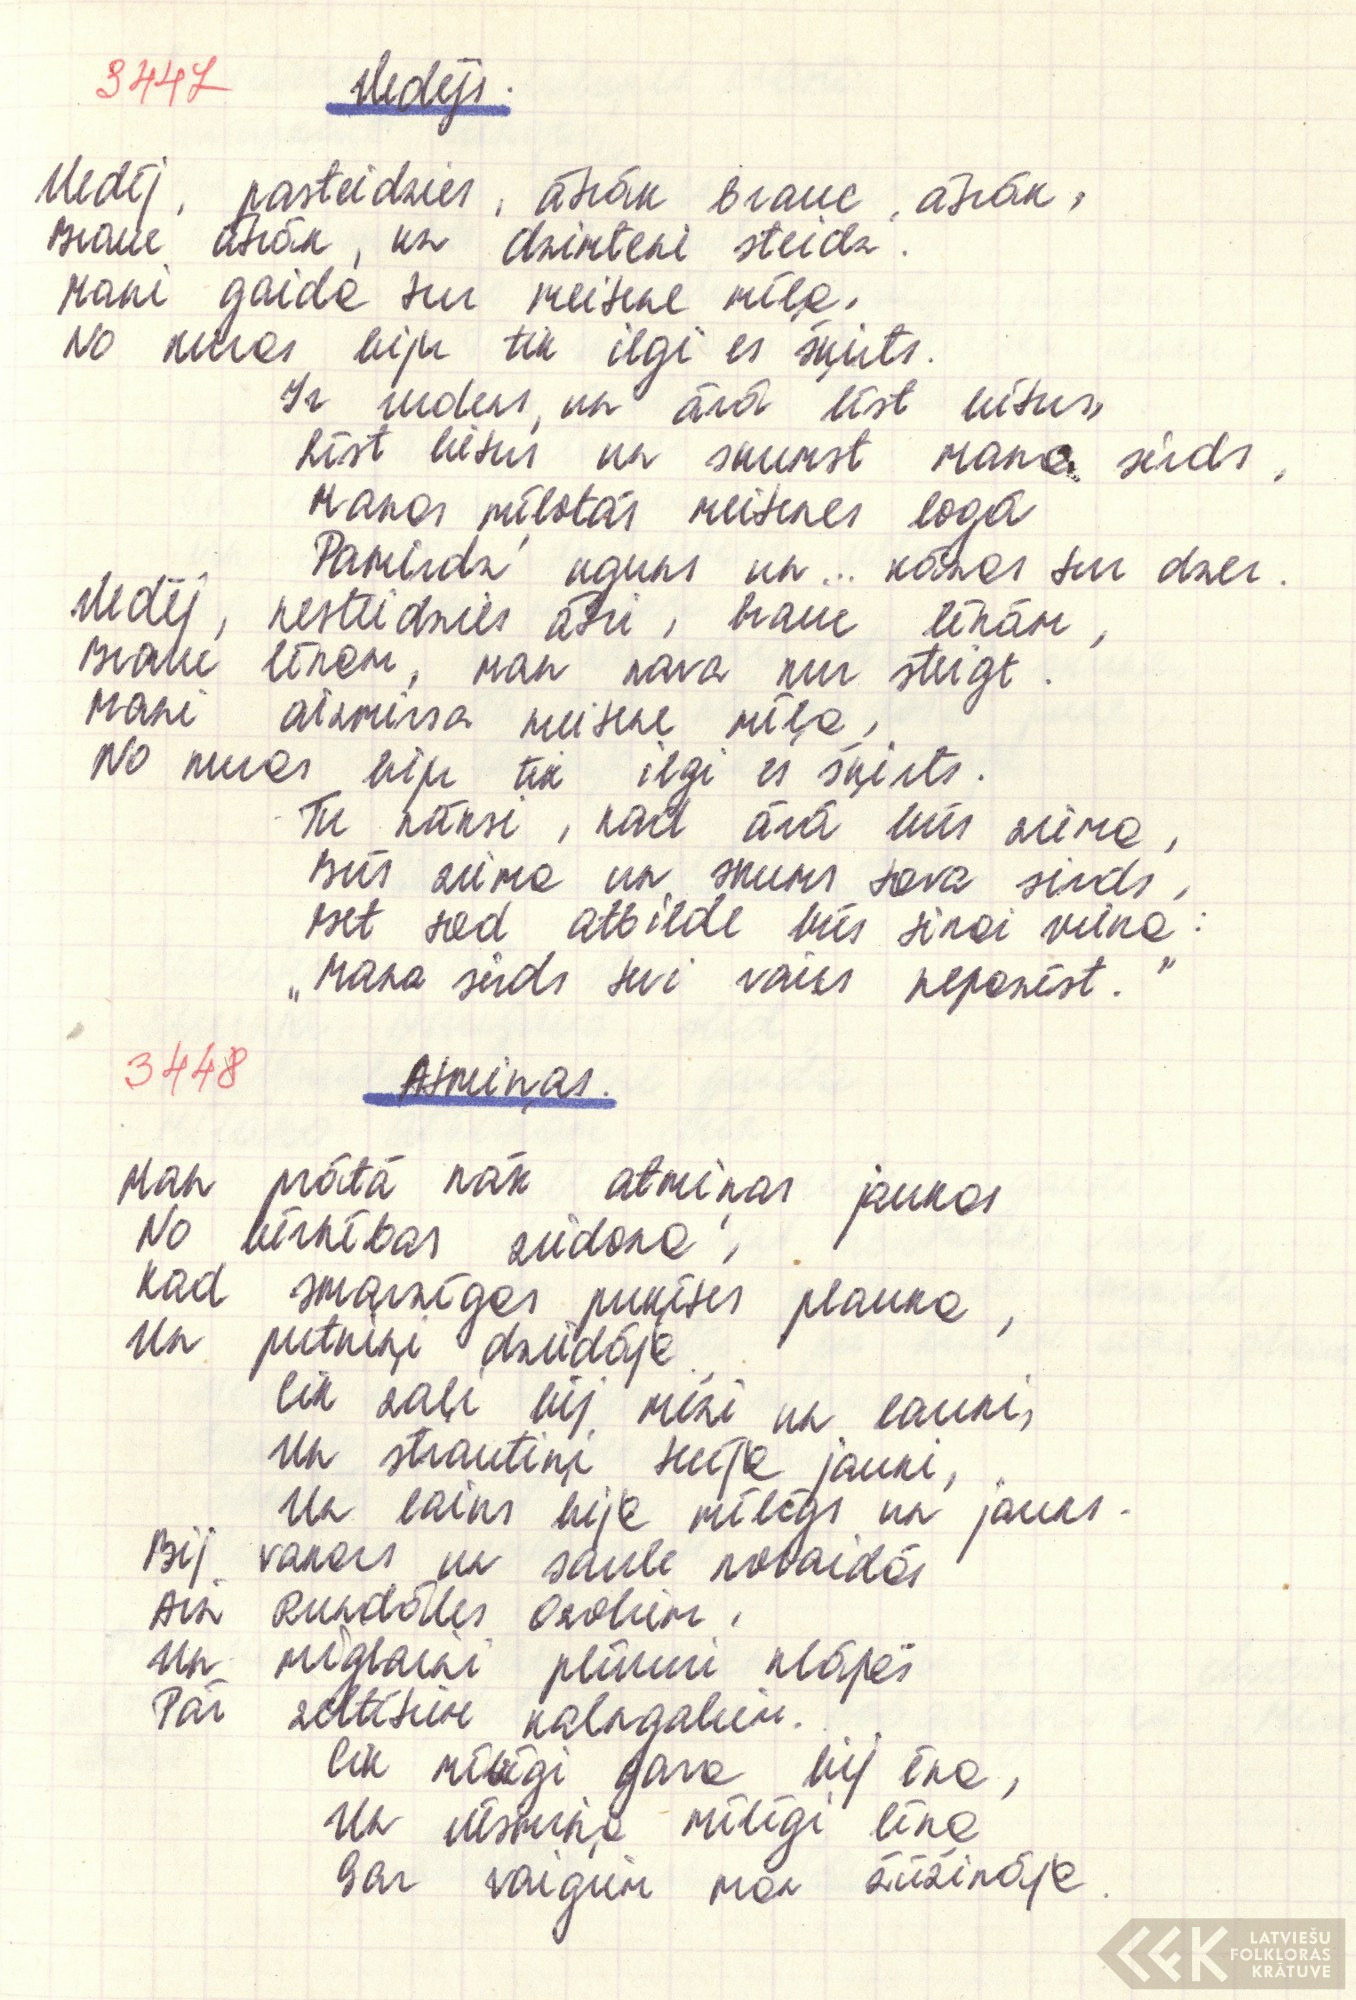 3447 Vedējs.
Vedēj, pasteidzies, ātrāk brauc, ātrāk,
Brauc ātrāk, uz dzimteni steidz.
Mani gaida tur meitene mīļa,
No kuras biju tik ilgi es šķirts.
Ir rudens, un ārā līst lietus,
Līst lietus un skumst mana sirds,
Manas mīļotās meitenes logā
Pamirdz uguns un... kāzas tur dzer.
Vedēj, nesteidzies ātri, brauc lēnām,
Brauc lēnam, man nava kur steigt.
Mani aizmirsa meitene mīļa,
No kuras biju tik ilgi es šķirts.
Tu nāksi, kad ārā būs ziema,
Būs ziema un skums tava sirds,
Bet tad atbilde būs tikai viena:
„Mana sirds tevi vairs nepazīst."
3448 Atmiņas.
Man prātā nāk atmiņas jaukas
No bērnības ziedoņa,
Kad smaržīgas puķītes plauka,
Un putniņi dziedāja
Cik zaļi bij meži un lauki,
Un strautiņi tecēja jauki,
Un laiks bija mīlīgs un jauks.
Bij vakars un saule nolaidās
Aiz Rundāles ozoliem,
Un miglaini plīvuri klāpās
Pār zeltītiem kalngaliem.
Cik mīlīgi gara bij ēna,
Un vēsmiņa mīlīgi lēna
Gar vaigiem man žūžināja.
LATVIEŠU
FOLKLORAS
KRĀTUVE